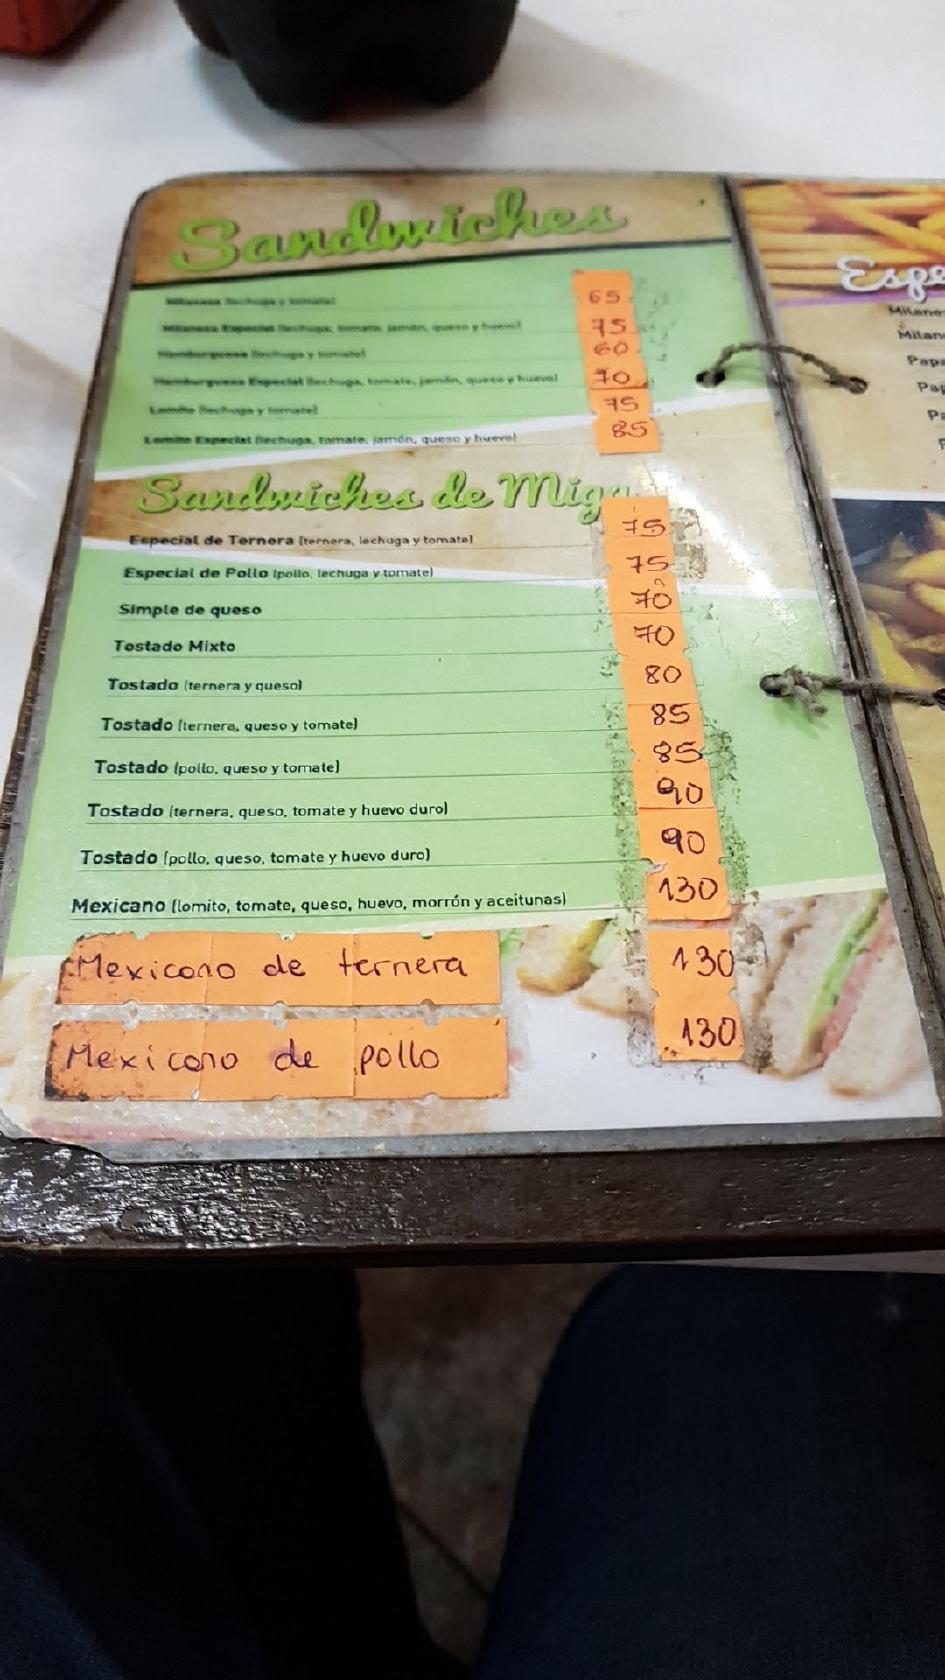 Sandwiches
Milanesa (lechuga y tomate) 65
Milanesa Especial (lechuga, tomate, jamón, queso y huevo) 75
Hamburguesa (lechuga y tomate) 60
Hamburguesa Especial (lechuga, tomate, jamón, queso y huevo) 70
Lomito (lechuga y tomate) 75
Lomito Especial (lechuga, tomate, jamón, queso y huevo) 85
Sandwiches de Miga
Especial de Ternera (ternera, lechuga y tomate) 75
Especial de Pollo (pollo, lechuga y tomate) 75
Simple de queso 70
Tostado Mixto 70
Tostado (ternera y queso) 80
Tostado (ternera, queso y tomate) 85
Tostado (pollo, queso y tomate) 85
Tostado (ternera, queso, tomate y huevo duro) 90
Tostado (pollo, queso, tomate y huevo duro) 90
Mexicano (lomito, tomate, queso, huevo, morrón y aceitunas) 130
Mexicano de ternera 130
Mexicano de pollo 130
Espe
Milane
Milan
Papa
Pap
Pa